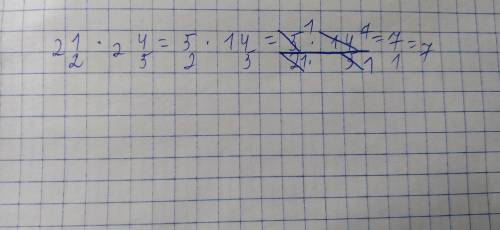 2 1/2 · 2 4/5 = 5/2 · 14/5 = 5 1 · 14 7 / 2 1 · 5 1 = 7/1 = 7